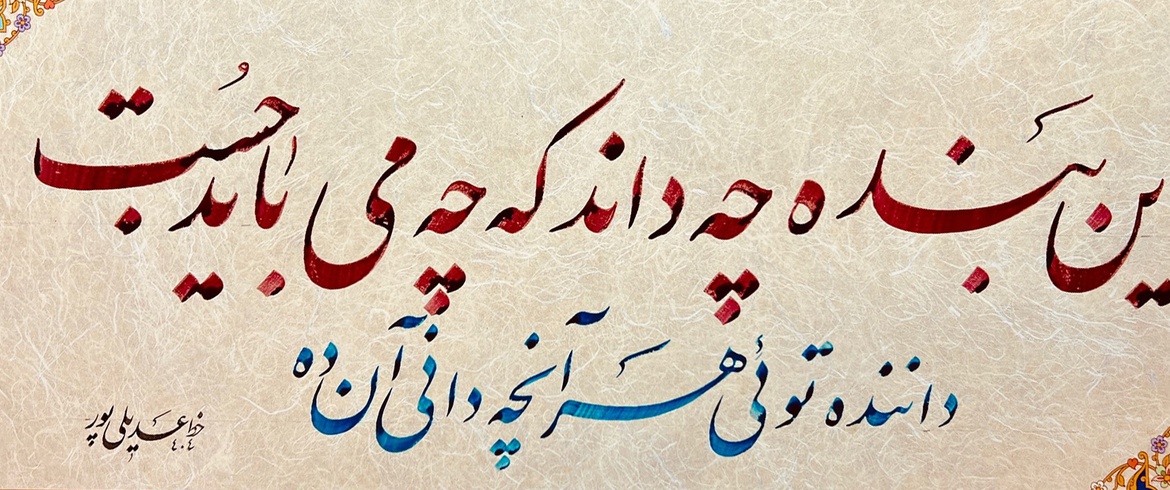 ین بنده چه داند که چه می باید جُست
داننده توئی هر آنچه دانی آن ده
خط عدیلی پور
۴۰۴